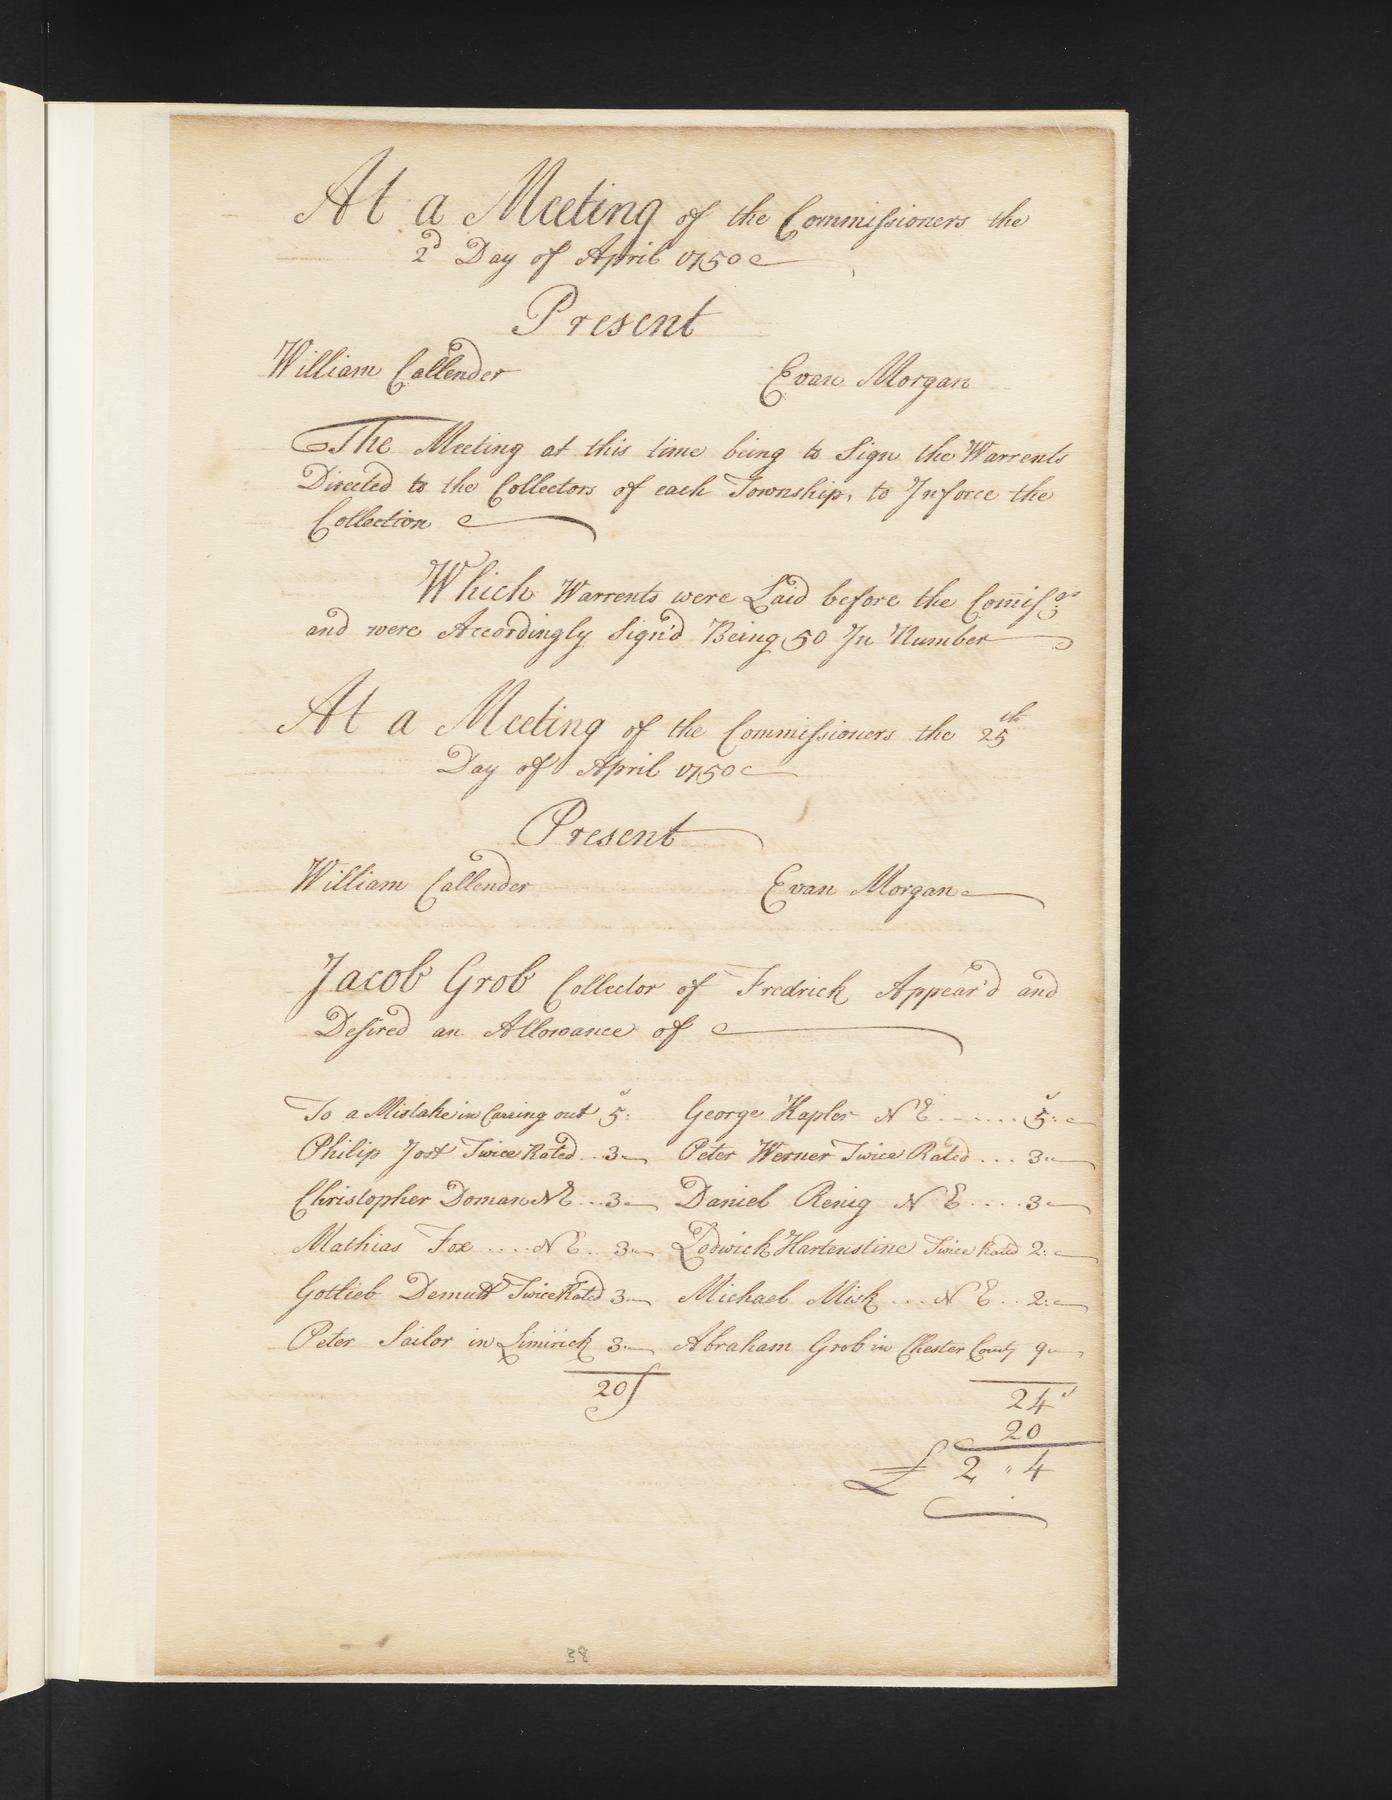 At a Meeting of the Commissioners the
2d Day of April 1750
Present
William Callender Evan Morgan
The Meeting at this time being to Sign the Warrents
Directed to the Collectors of each Township, to Inforce the
Collection
Which Warrents were Laid before the Comissrs
and were Accordingly Sign'd Being 50 In Number
At a Meeting of the Commissioners the 25th
Day of April 1750
Present
William Callender Evan Morgan
Jacob Grob Collector of Fredrick Appear'd and
Desired an Allowance of
To a Mistake in Carring out 5s: George Hapler N E ...... 5s:
Philip Jost Twice Rated .. 3 Peter Werner Twice Rated ... 3
Christopher Doman N E ... 3 Daniel Renig N E .... 3
Mathias Fox .... N E .. 3 Lodwick Hartenstine Twice Rated 2:
Gottlieb Demutt Twice Rated 3 Michael Misk ... N E .. 2:
Peter Sailor in Limirick 3 Abraham Grob in Chester County 9
20s 24s
20
£ 2 " 4
38